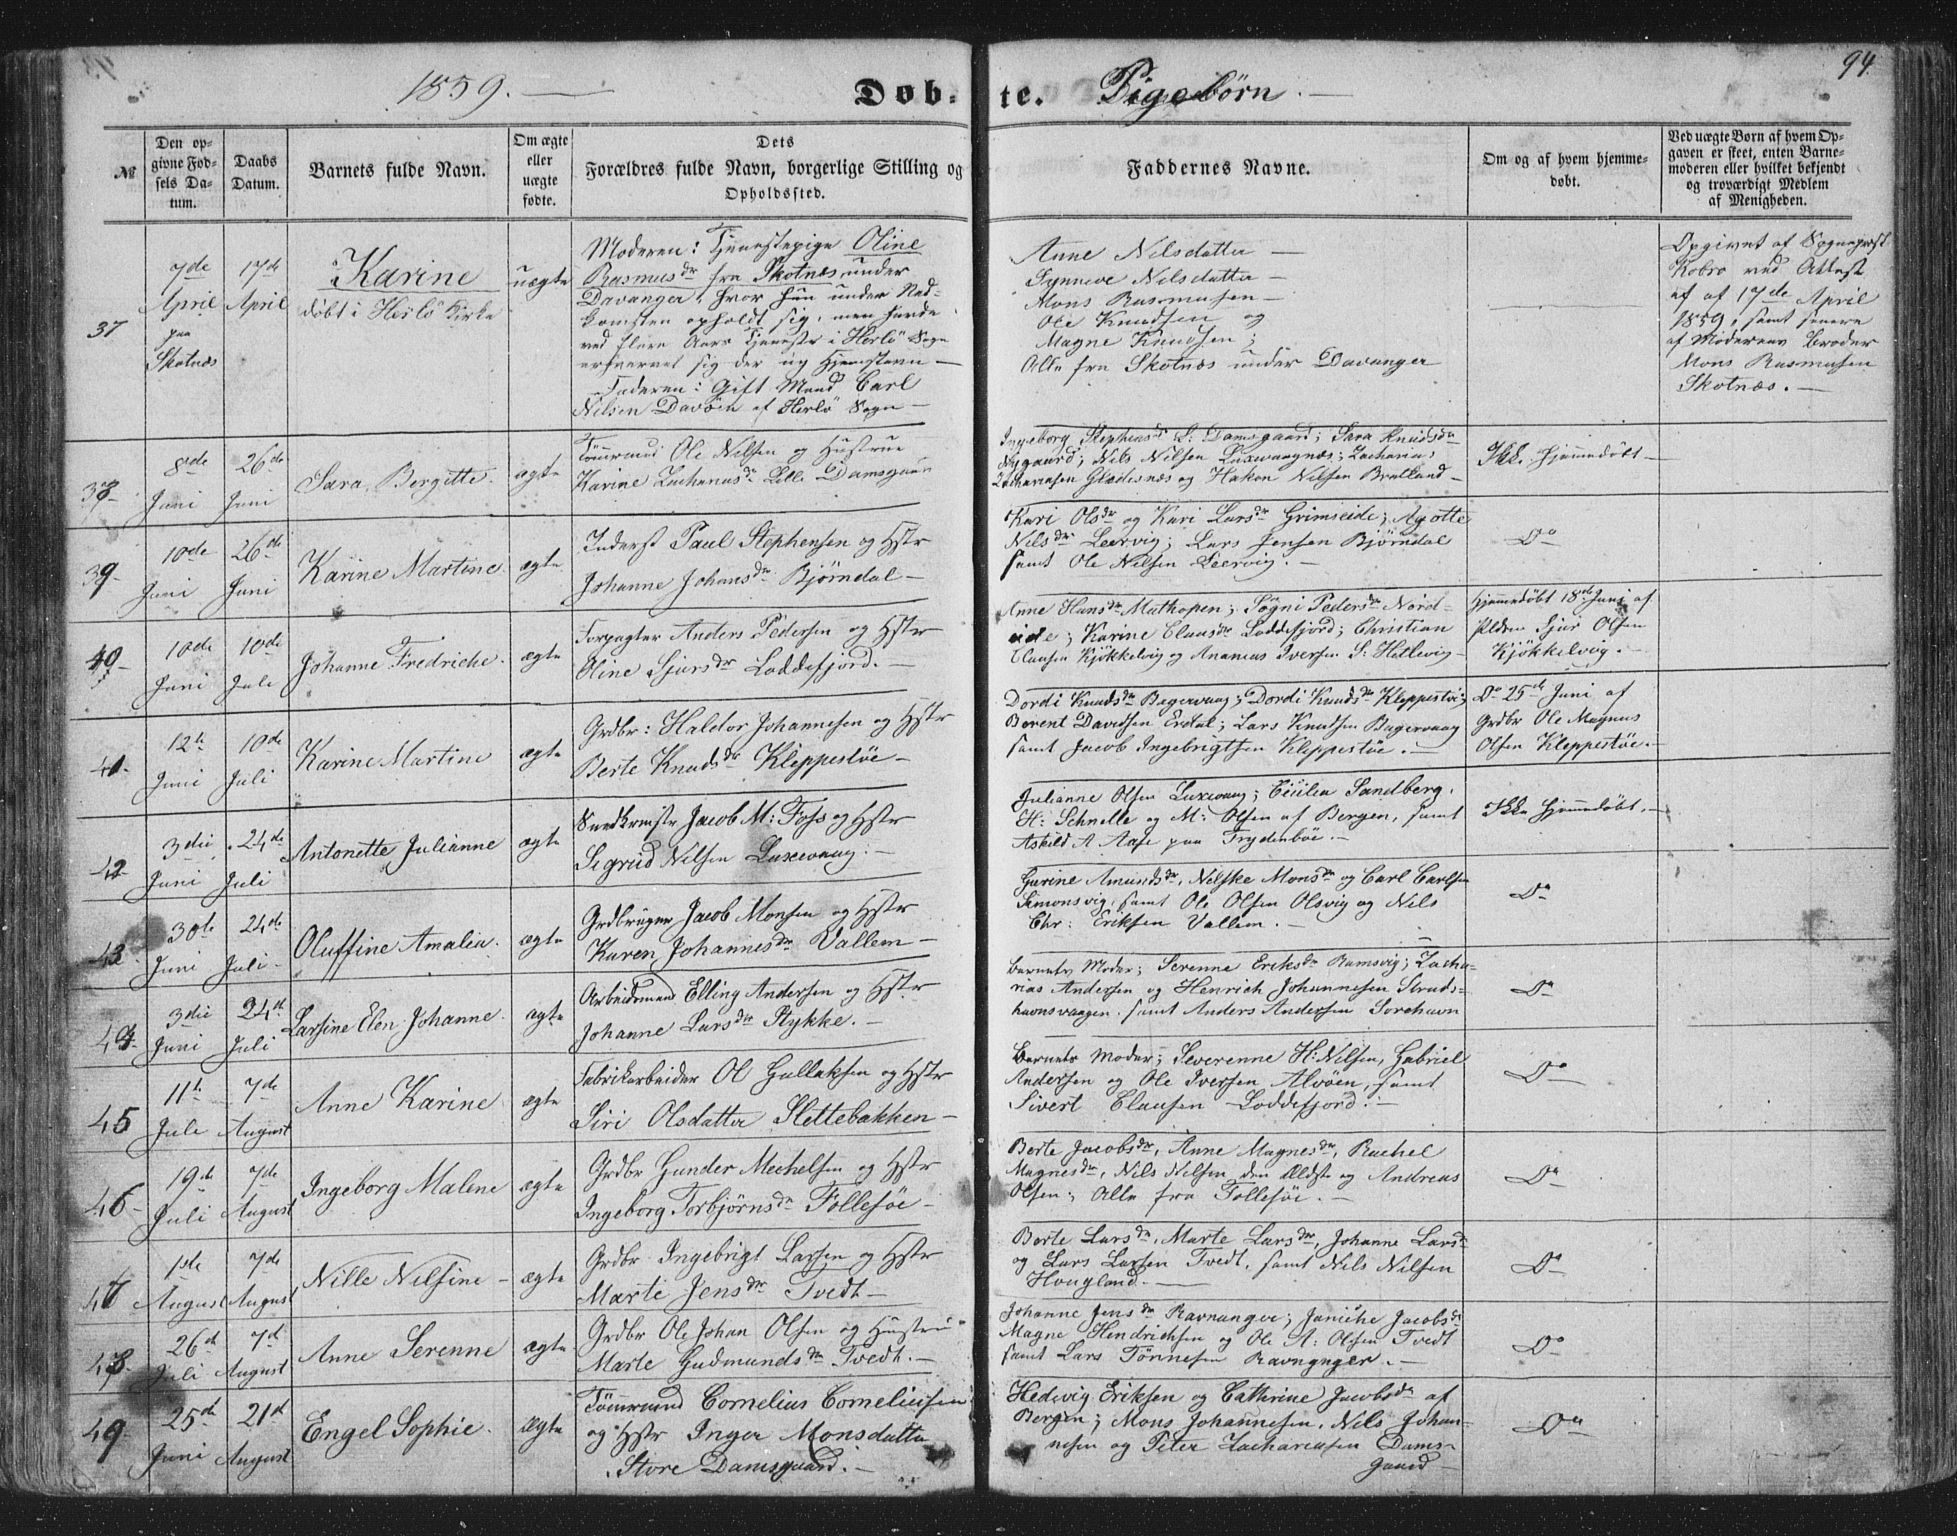 94
1859. —
Døb- te. Pigebørn. —
№
Den op-
givne Fød-
sels Da-
tum.
Daabs
Datum.
Barnets fulde Navn.
Om ægte
eller
uægte
fødte.
Dets
Forældres fulde Navn, borgerlige Stilling og
Opholdssted.
Faddernes Navne.
Om og af hvem hjemme-
døbt.
Ved uægte Børn af hvem Op-
gaven er skeet, enten Barne-
moderen eller hvilket bekjendt
og troværdigt Medlem
af Menigheden.
37
7de
April
paa
Skotnæs
17de
April
Karine
døbt i Herlö Kirke
uægte
Moderen: Tjenestepige Oline
Rasmusdr fra Skotnæs under
Davanger, hvor hun under Ned-
komsten opholdt sig, men havde
ved flere Aars Tjeneste i Herlö Sogn
erhvervet sig der sig Hjemstavn —
Faderen: Gift Mand Carl
Nilsen Davöen af Herlö Sogn —
Anne Nilsdatter —
Synneve Nilsdatter —
Mons Rasmusen —
Ole Knudsen og
Magne Knudsen;
Alle fra Skotnæs under Davanger
Opgivet af Sognepræst
Kobro ved Attest
af 17de April
1859, samt senere
af Moderens Broder
Mons Rasmusen
Skotnæs. —
38
8de
Juni
26de
Juni
Sara Bergitte.
ægte
Tømrmd Ole Nilsen og Hustrue
Karine Zachariasdr Lille Damsgaard
Ingeborg Stephensdr L: Damsgaard; Sara Knudsdr
Nygaard; Nils Nilsen Laxevaagnæs; Zacharias
Zachariasen Gladesnæs og Hakon Nilsen Bratland —
Ikke hjemmedöbt —
39
10de
Juni
26de
Juni
Karine Martine.
ægte
Inderst Paul Stephensen og Hstr
Johanne Johansdr Bjørndal —
Kari Olsdr og Kari Larsdr Grimseide; Agotte
Nilsdr Leervig; Lars Jensen Bjørndal
samt Ole Nilsen Leervig. —
Do
40
10de
Juni
10de
Juli
Johanne Fredriche.
ægte
Forpagter Anders Pedersen og Hstr
Oline Sjursdr Loddefjord. —
Anne Hansdr Mathopen; Sögni Pedersdr Nord-
eide; Karine Clausdr Loddefjord; Christian
Clausen Kjøkkelvig og Ananias Iversen S: Hetlevig —
Hjemmedöbt 18de Juni af
Sjur Olsen
Kjøkkelvig. —
41
12te
Juni
10de
Juli
Karine Martine
ægte
Grdbr: Haldor Johannesen og Hstr
Berte Knudsdr Kleppestøe —
Dordi Knudsdr Bagervaag; Dordi Knudsdr Kleppestö;
Berent Davidsen Erdal; Lars Knudsen Bagervaag
samt Jacob Ingebrigtsen Kleppestøe. —
Do 25de Juni af
Grdbr Ole Magnus
Olsen Kleppestöe. —
42
3die
Juni
24de
Juli
Antonette Julianne
ægte
Snedkermstr Jacob M: Foss og Hstr
Sigrid Nilsen Laxevaag. —
Julianne Olsen Laxevaag; Cecilea Sandberg.
H: Schnelle og M: Olsen af Bergen, samt
Askild A Aase paa Frydenböe. —
Ikke hjemmedöbt. —
43
30te
Juni
24de
Juli
Oluffine Amalia.
ægte
Grdbruger Jacob Monsen og Hstr
Karen Johannesdr Vallem —
Gurine Amundsdr, Nilske Monsdr og Carl Carlsen
Simonsvig, samt Ole Olsen Olsvig og Nils
Chr: Eriksen Vallem. —
Do
44
3die
Juni
24de
Juli
Larsine Elen Johanne.
ægte
Arbeidsmand Elling Andersen og Hstr
Johanne Larsdr Stykke. —
Barnets Moder; Serenne Eriksdr Ramsvig; Zacha-
rias Andersen og Henrich Johannesen Struds-
havnsvaagen, samt Anders Andersen Sorehavn
Do
45
11te
Juli
7de
August
Anne Karine
ægte
Fabrikarbeider Ol Gullaksen og Hstr
Siri Olsdatter Slettebakken —
Barnets Moder; Severenne H: Nilsen, Gabriel
Andersen og Ole Iversen Alvöen, samt
Sivert Clausen Loddefjord. —
Do
46
19de
Juli
7de
August
Ingeborg Malene
ægte
Grdbr Gunder Mechelsen og Hstr
Ingeborg Torbjørnsdr Follesøe —
Berte Jacobsdr, Anne Magnesdr, Rachel
Magnesdr, Nils Nilsen den Ældste og Andreas
Olsen; Alle fra Follesøe. —
Do
47
1ste
August
7de
August
Nille Nilsine —
ægte
Grdbr Ingebrigt Larsen og Hstr
Marte Jensdr Tvedt —
Berte Larsdr, Marte Larsdr, Johanne Larsdr
og Lars Larsen Tvedt, samt Nils Nilsen
Hougland. —
Do
48
26de
Juli
7de
August
Anne Serenne
ægte
Grdbr Ole Johan Olsen og Hustru
Marte Gudmundsdr Tvedt. —
Johanne Jensdr Ravnanger; Janiche Jacobsdr
Magne Hendrichsen og Ole A: Olsen Tvedt
samt Lars Tönnesen Ravnanger. —
Do
49
25de
Juni
21de
August
Engel Sophie.
ægte
Tömrmand Cornelius Corneliusen
og Hstr Inger Monsdatter
Store Damsgaard. —
Hedevig Eriksen og Cathrine Jacobsdr af
Bergen; Mons Johannesen, Nils Johan-
nesen og Peter Zachariasen Dams-
gaard —
Do